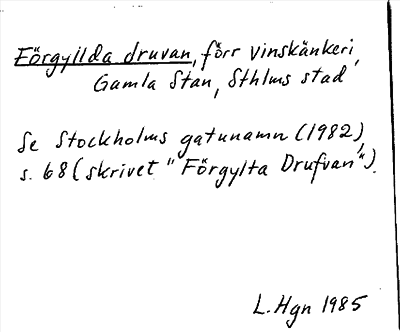 Förgyllda druvan, förr vinskänkeri,
Gamla Stan, Sthlms stad
Se Stockholms gatunamn (1982),
s. 68 (skrivet "Förgylta Drufvan").
L. Hgn 1985